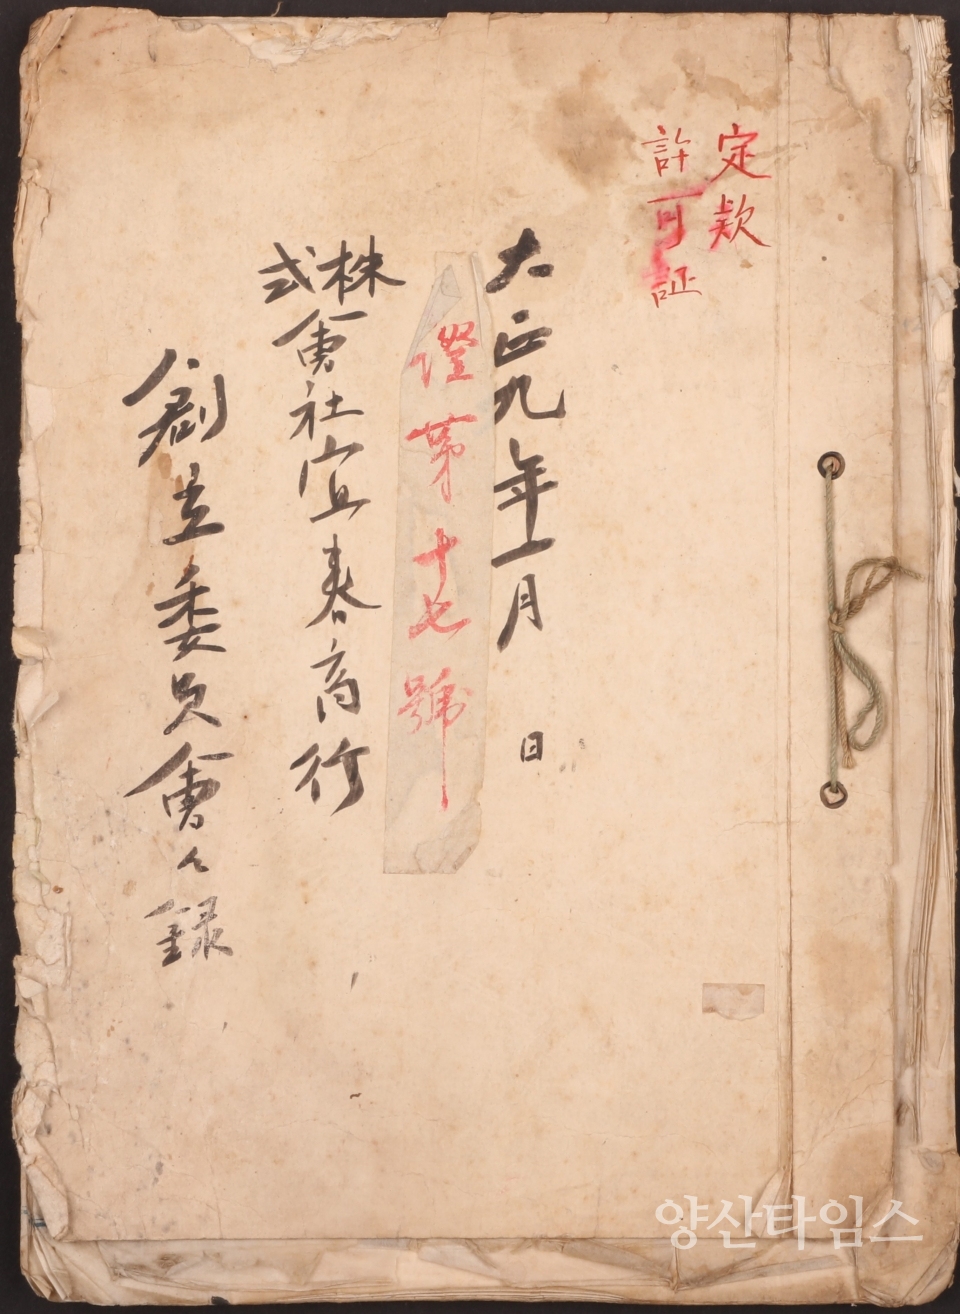 定款
許可証
大正九年一月　日
證第十七號
株式會社宜春商行
創立委員會々録
양산타임스